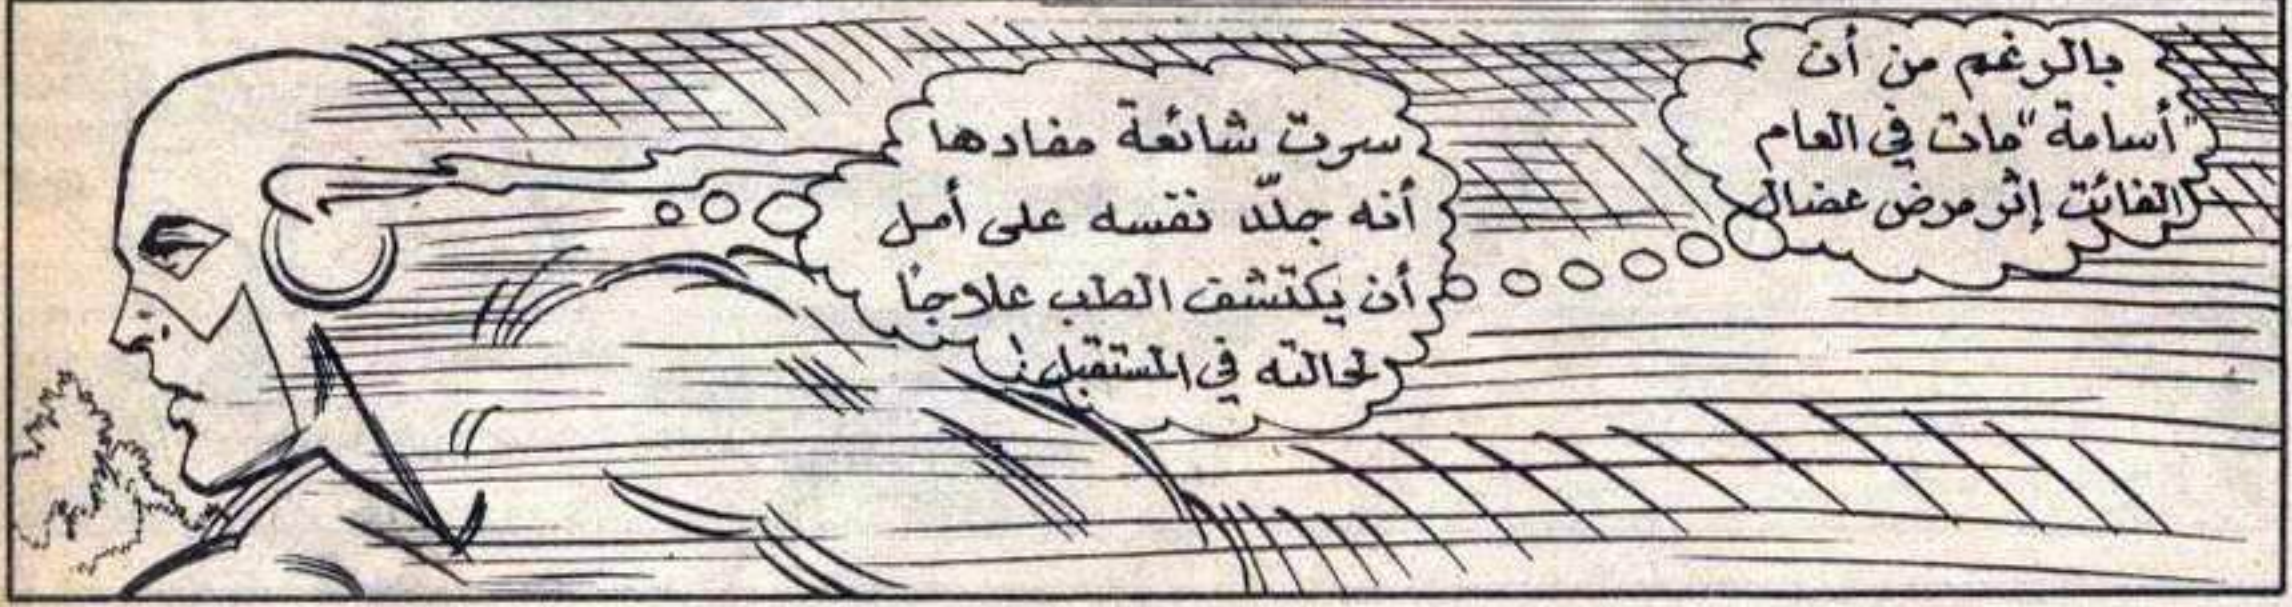 بالرغم من أن
"أسامة" مات في العام
الفائت إثر مرض عضال
سرت شائعة مفادها
أنه جلّد نفسه على أمل
أن يكتشف الطب علاجًا
لحالته في المستقبل!